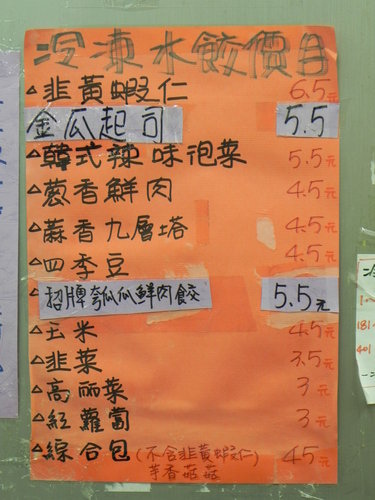 冷凍水餃價目
△韭黃蝦仁 6.5元
金瓜起司 5.5
△韓式辣味泡菜 5.5元
△蔥香鮮肉 4.5元
△蒜香九層塔 4.5元
△四季豆 4.5元
招牌夸瓜瓜鮮肉餃 5.5元
△玉米 4.5元
△韭菜 3.5元
△高麗菜 3元
△紅蘿蔔 3元
△綜合包(不含韭黃蝦仁) 45元
芋香菇菇